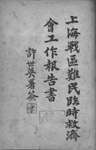 上海戰區難民臨時救濟
會工作報告書
許世英署簽